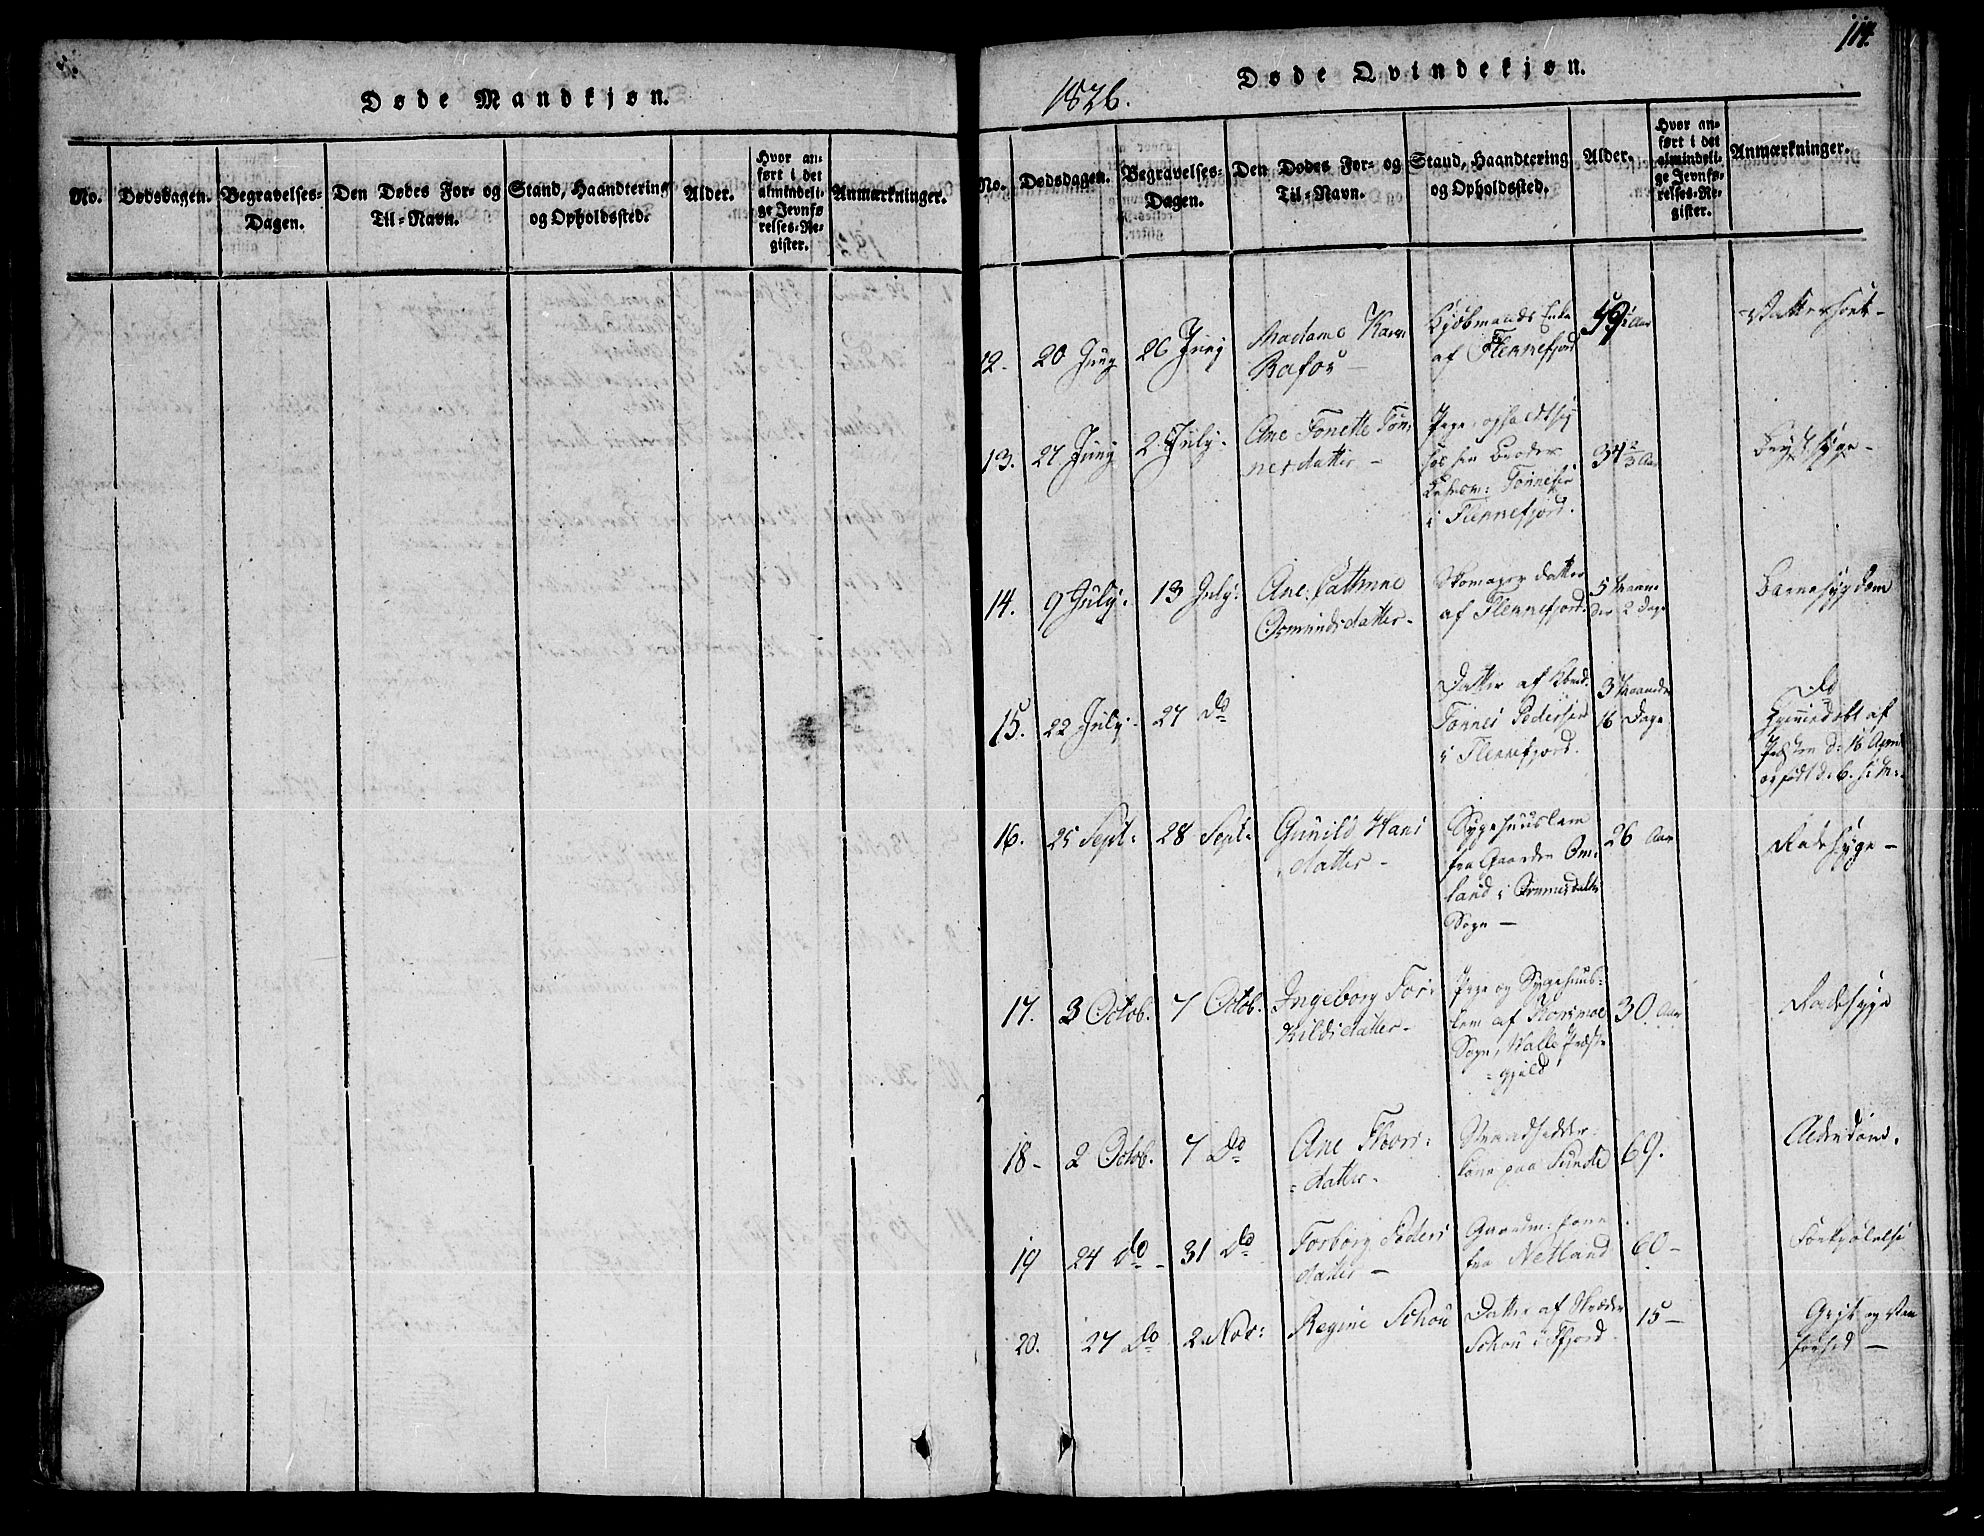 Døde Mandkjøn.
No.
Dødsdagen.
Begravelses-
Dagen.
Den Dødes For- og
Til-Navn.
Stand, Haandtering
og Opholdssted.
Alder.
Hvor an-
ført i det
almindeli-
ge Jevnfø
relses-Re-
gister.
Anmærkninger.
114.
1826.
Døde Qvindekjøn.
No.
Dødsdagen.
Begravelses-
Dagen.
Den Dødes For- og
Til-Navn.
Stand, Haandtering
og Opholdssted.
Alder.
Hvor an-
ført i det
almindeli-
ge Jevnfø-
relses-Re-
gister.
Anmærkninger.
12. 20 Juny 26 Juny
Madame Karen
Rafos
Kjøbmands Enke
af Flennefjord
59 Aar
Vattersott-
13. 27 Juny 2 July.
Ane Tonette Tøn-
nesdatter -
Pige, opholdt sig
hos sin Broder
Tønnesen
i Flennefjord.
34 2/3 Aar
Brystsyge-
14. 9 July. 13 July.
Ane Cathrine
Osmundsdatter-
Skomager datter
af Flennefjord.
5 Maane-
der 2 Dage
Barnesygdom
15. 22 July. 27 do
Datter af
Tønnes Pedersen
i Flennefjord.
3 Maaneder
16 Dage
do
Hjemmedøbt af
Præsten d. 16 April
og født d. 6. s. M.
16. 25 Sept: 28 Sept:
Gunild Hans
datter -
Sygehuuslem
fra Gaarden Om-
land i
Sogn -
26 Aar
Radesyge -
17. 3 Octob. 7 Octob.
Ingeborg Tor-
kildsdatter-
Pige og Sygehuus-
lem af
Sogn, Walle Præste
-gjeld
30 Aar
Radesyge
18- 2 Octob. 7 do
Ane
-datter-
Strandsidder-
kone paa Sunde
69.
Alderdom.
19 24 do - 31 do
Torborg Peders
datter -
Gaardm: kone
fra Netland
60-
Forkjølelse
20. 27 do 2 Nov:
Regine Schou
Datter af Skræder
Schou i Ffjord-
15-
Gigt og